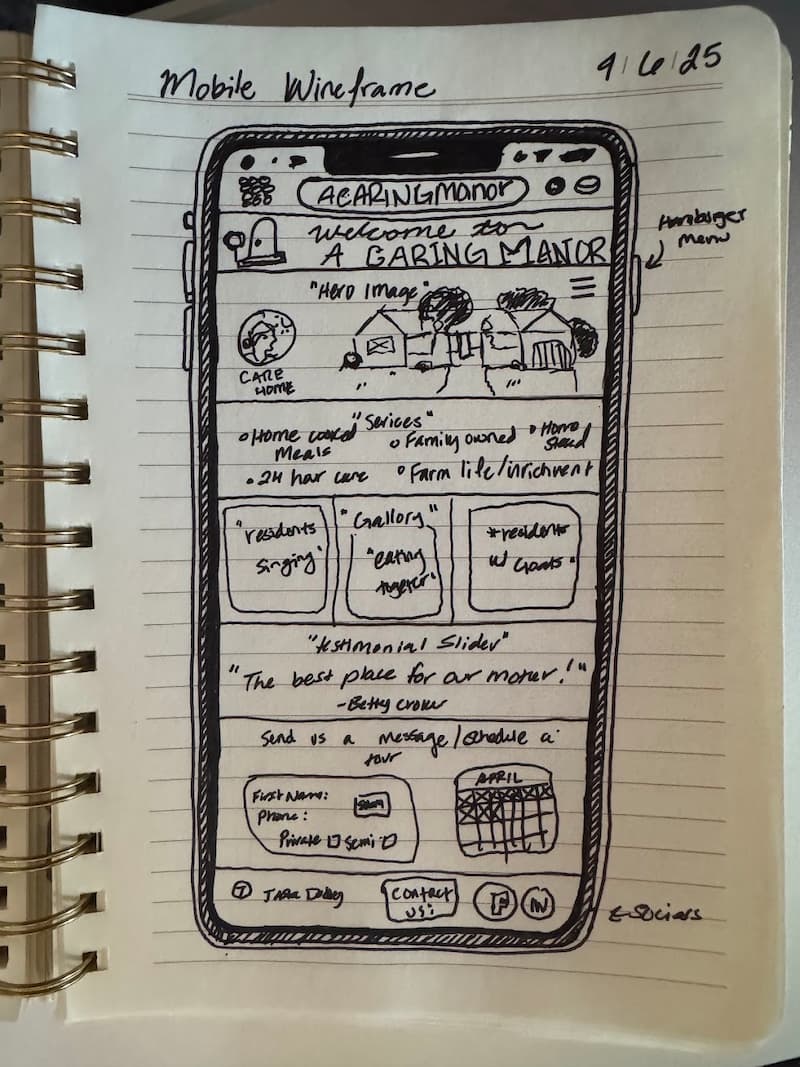 Mobile Wireframe
4/6/25
ACARINGmanor
Welcome to
A CARING MANOR
Hamburger
Menu
"Hero Image"
CARE
HOME
"Serices"
Home cooked
Meals
Family owned
Home
24 hour care
Farm life/inrichment
"residents
singing"
"Gallory"
"eating
together"
"residents
w/ Goats"
"testimonial Slider"
"The best place for our moter!"
-Betty Croker
Send us a message/schedule a
tour
First Name:
Phone:
Private
Semi
APRIL
T
Contact
us:
F
IN
Socials